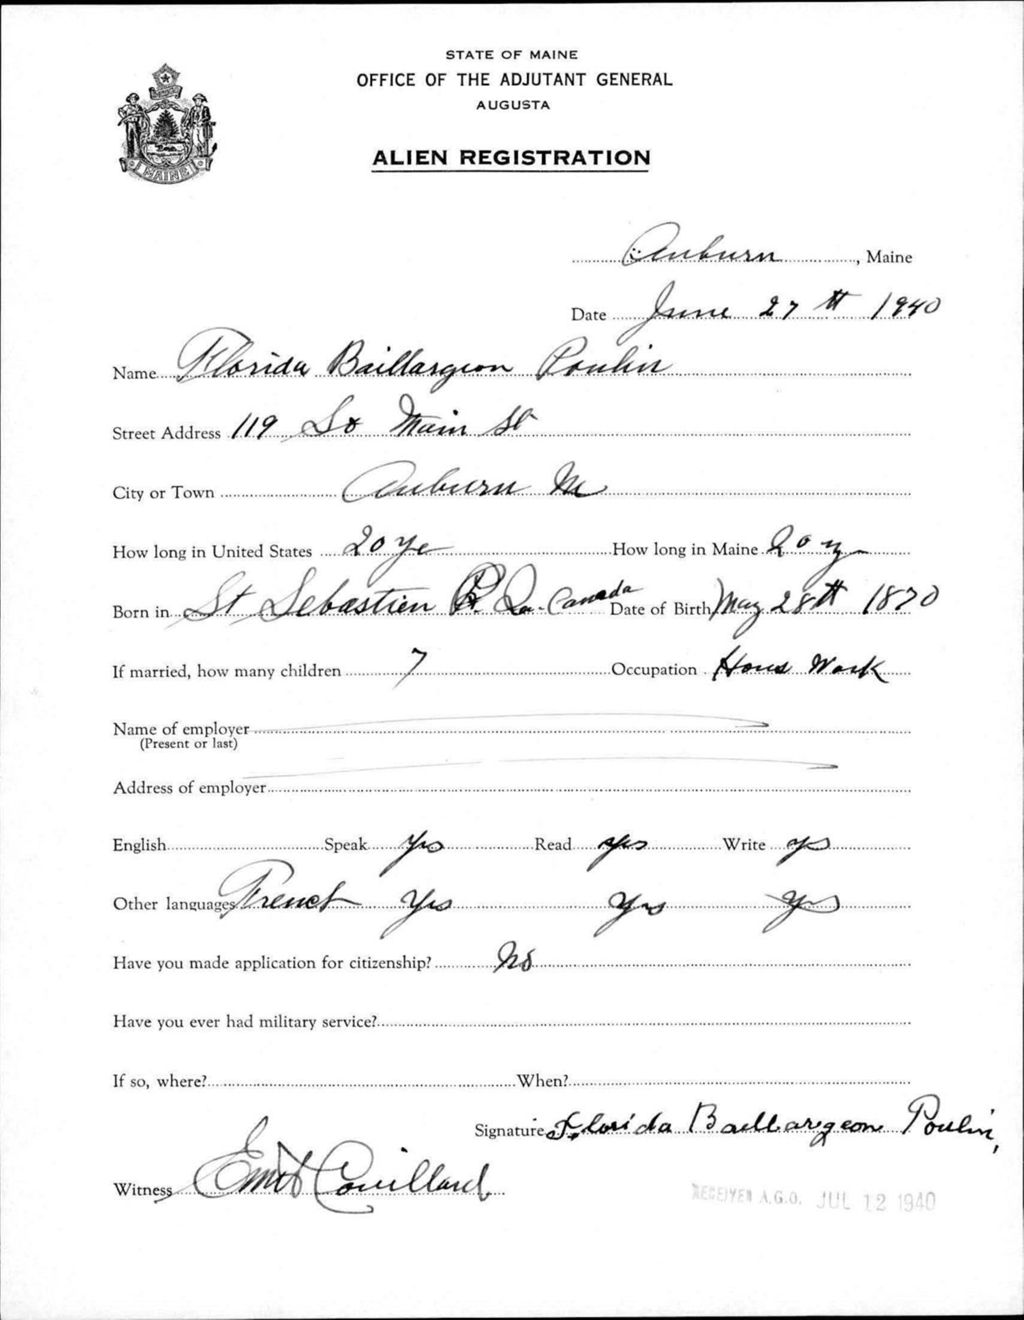 STATE OF MAINE
OFFICE OF THE ADJUTANT GENERAL
AUGUSTA
ALIEN REGISTRATION
MAINE
Auburn, Maine
Date June 27th 1940
Name Florida Baillargeon Poulin
Street Address 119 So Main St
City or Town Auburn Me
How long in United States 20 ye How long in Maine 20 y
Born in St Sebastien P. Q. Canada Date of Birth May 28th 1870
If married, how many children 7 Occupation Hous Work
Name of employer
(Present or last)
Address of employer
English Speak Yes Read yes Write yes
Other languages French Yes Yes Yes
Have you made application for citizenship? No
Have you ever had military service?
If so, where? When?
Signature Florida Baillargeon Poulin
Witness Couillard
RECEIVED A.G.O. JUL 12 1940